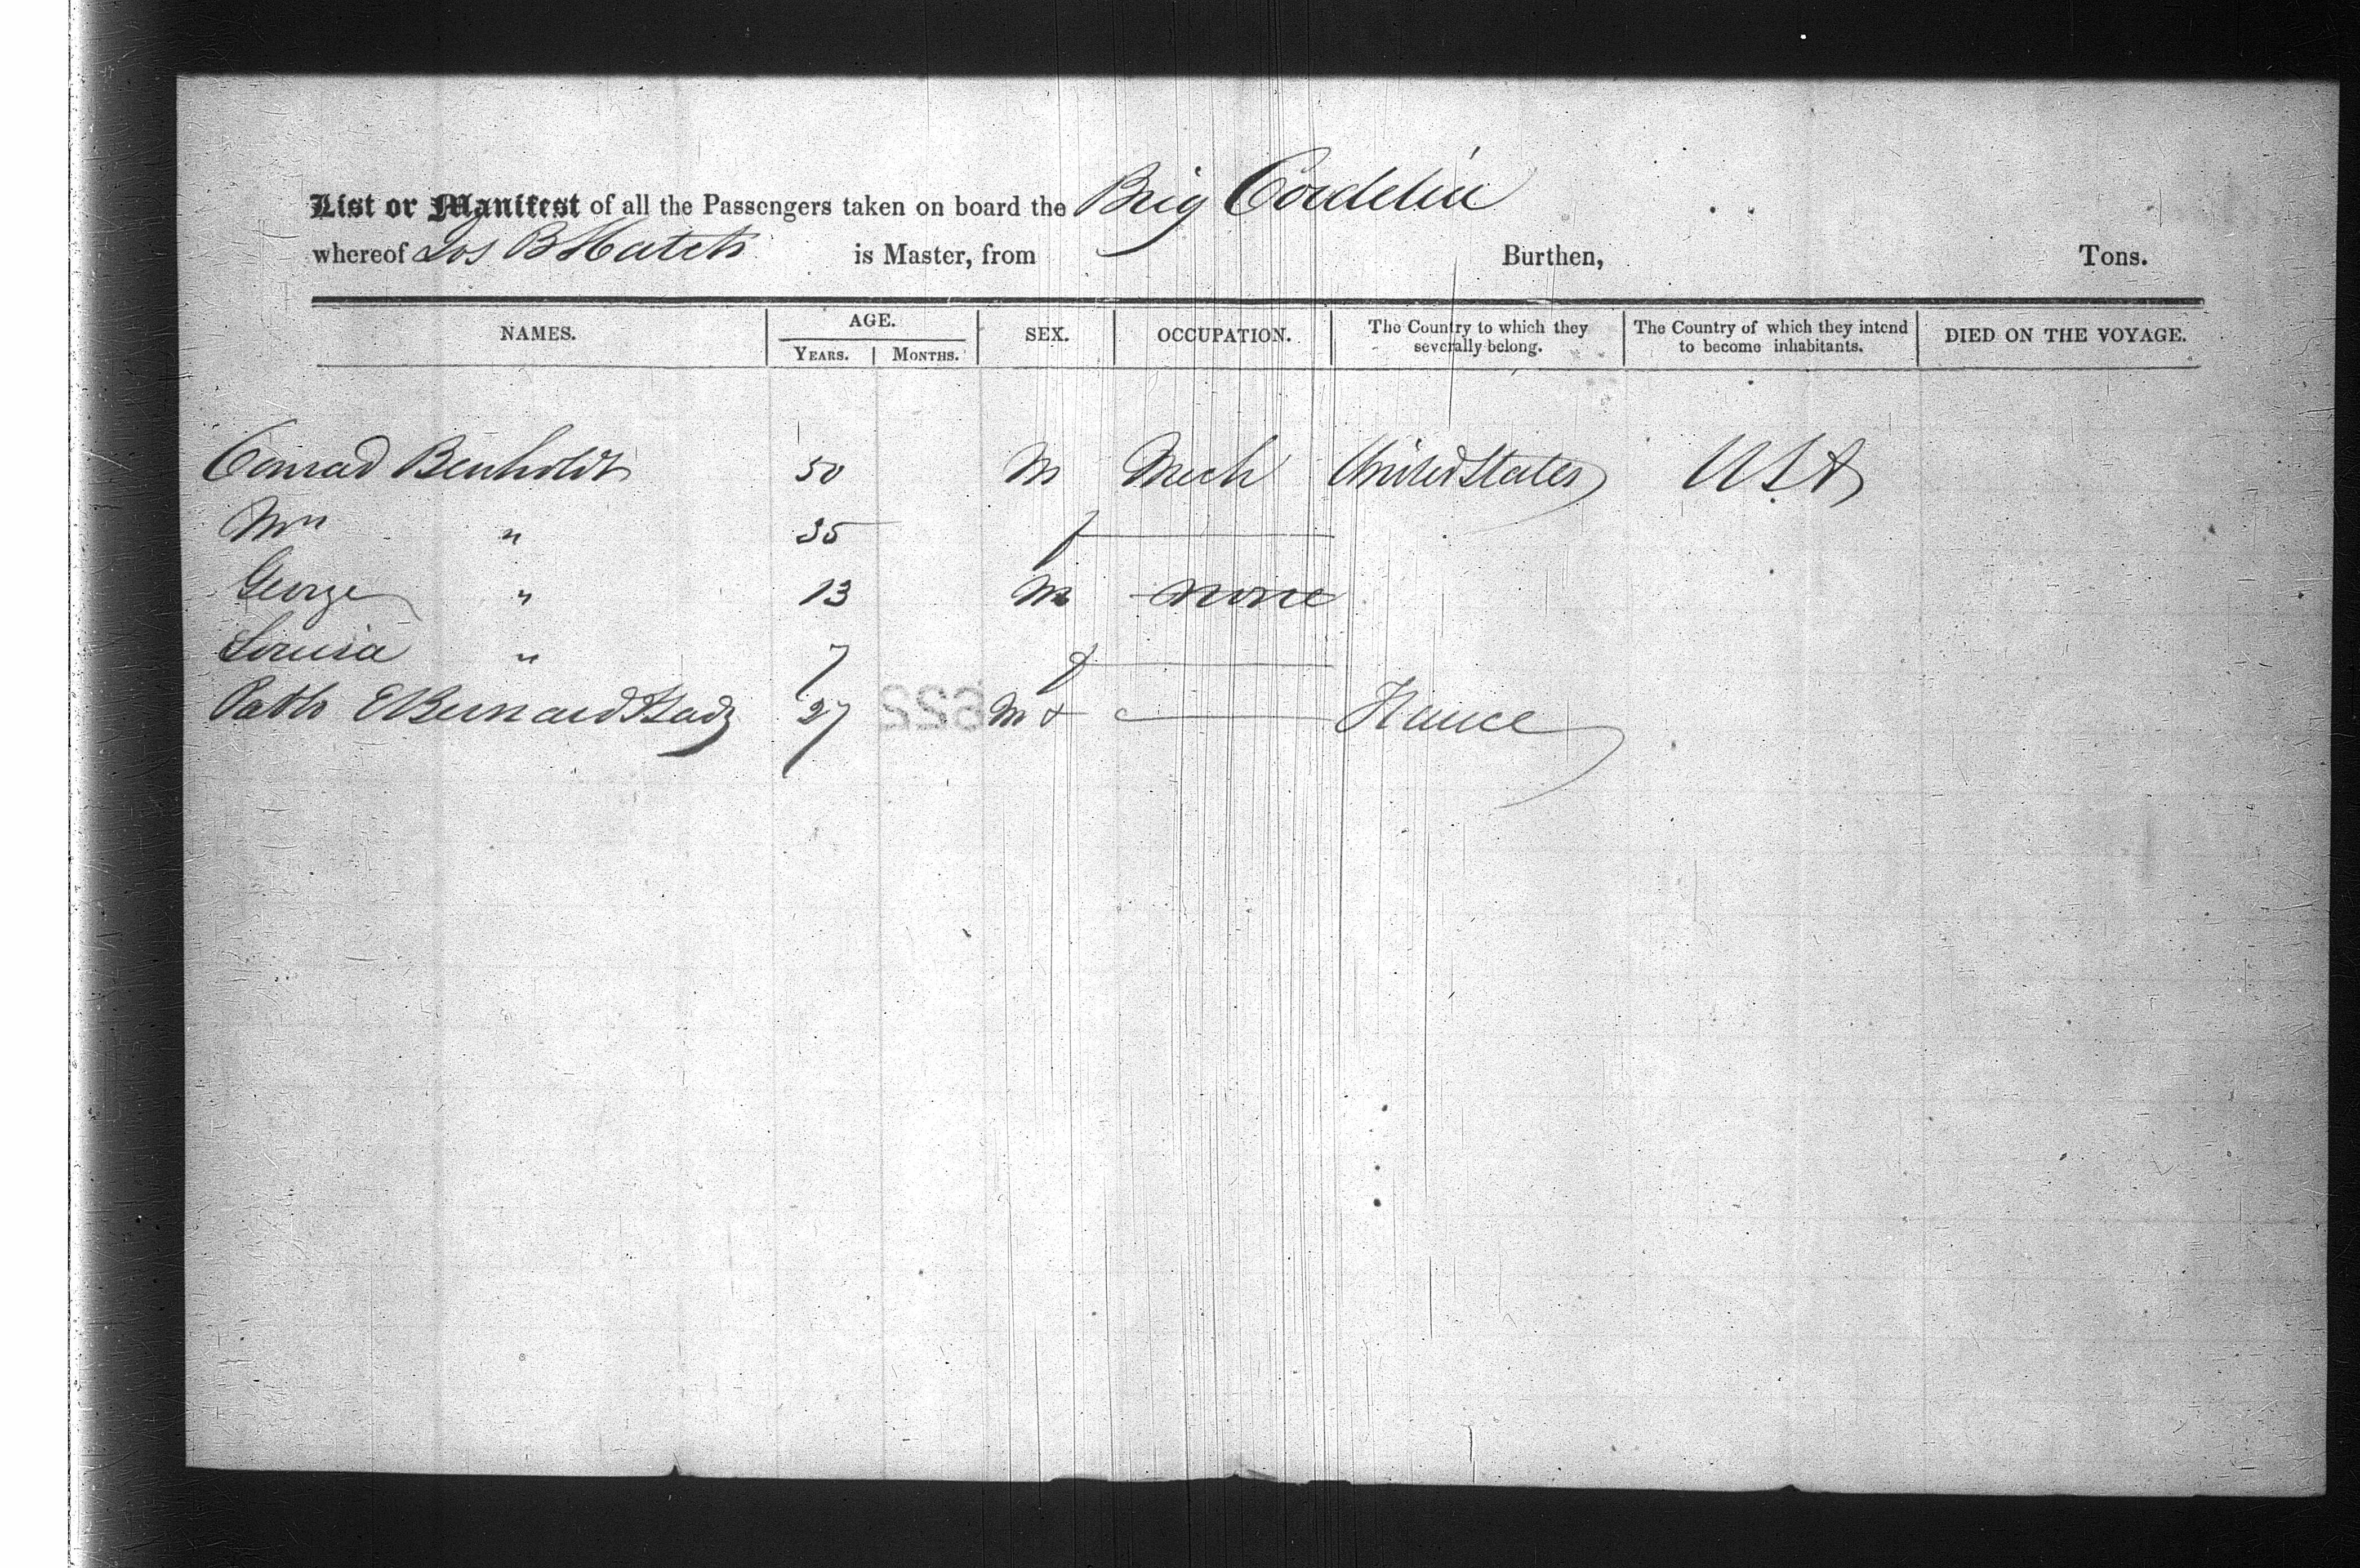 List or Manifest of all the Passengers taken on board the Brig Cordelia
whereof Jos B Hatch is Master, from Burthen, Tons.
NAMES. AGE. SEX. OCCUPATION. The Country to which they severally belong. The Country of which they intend to become inhabitants. DIED ON THE VOYAGE.
YEARS. MONTHS.
Conrad Benholdt 50 M Mech United States USA
Mrs " 35 f
George " 13 M none
Louisa " 7 f
E Bernard 27 M France
622